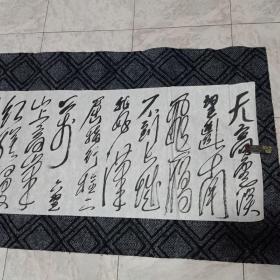 天高云淡
望断南
飞雁
不到长城
非好汉
屈指行程二
万 六盘
山上高峰
红旗漫